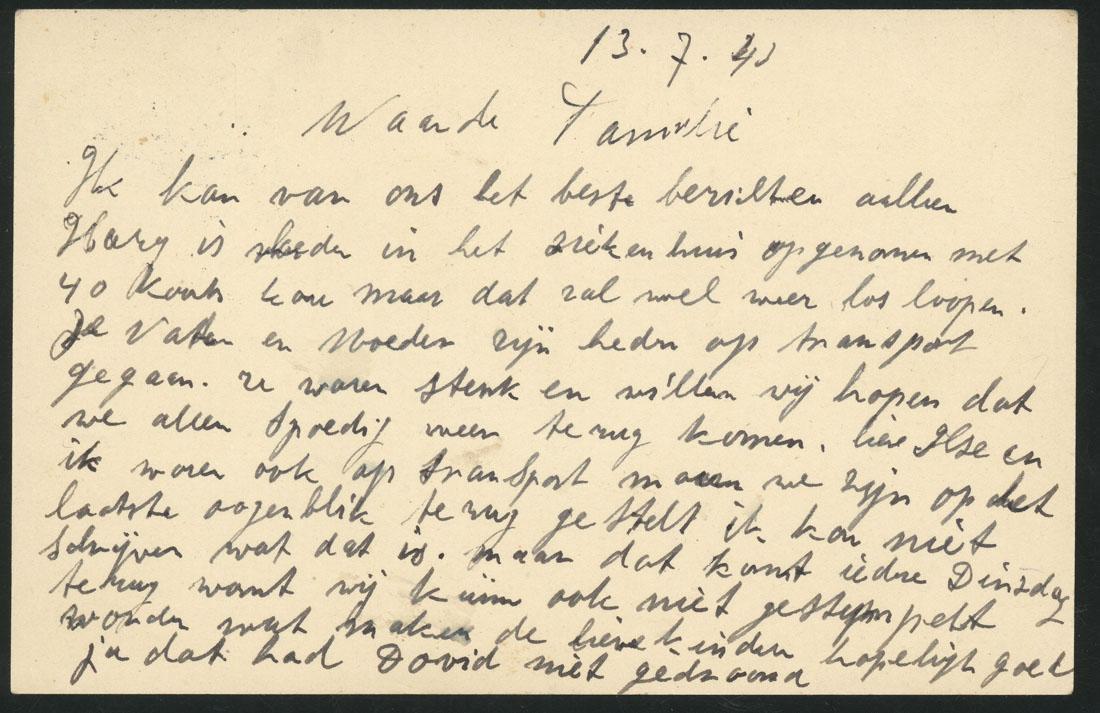 13. 7. 43
Waarde Familie
Ik kan van ons het beste berichten allen
Harry is heden in het ziekenhuis opgenomen met
40 koorts kou maar dat zal wel weer los loopen.
Je Vater en Moeder zijn heden op transport
gegaan. ze waren sterk en willen wij hopen dat
we allen spoedig weer terug komen. lieve Ilse en
ik waren ook op transport maar we zijn op het
laatste oogenblik terug gestelt ik kan niet
schrijven wat dat is. maar dat komt iedre Dinsdag
terug want wij kunn ook niet gestempelt
worden wat maken de lieve kinder hopelijk goed
ja dat had David niet gedroomd